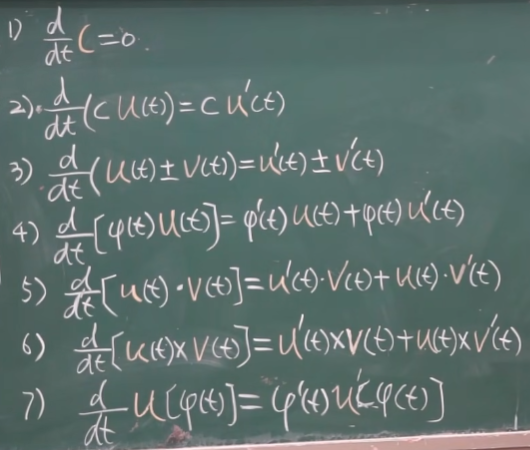 1) d/dt C = 0
2) d/dt (C u(t)) = C u'(t)
3) d/dt (u(t) ± v(t)) = u'(t) ± v'(t)
4) d/dt [φ(t) u(t)] = φ'(t) u(t) + φ(t) u'(t)
5) d/dt [u(t) · v(t)] = u'(t) · v(t) + u(t) · v'(t)
6) d/dt [u(t) × v(t)] = u'(t) × v(t) + u(t) × v'(t)
7) d/dt u[φ(t)] = φ'(t) u'[φ(t)]